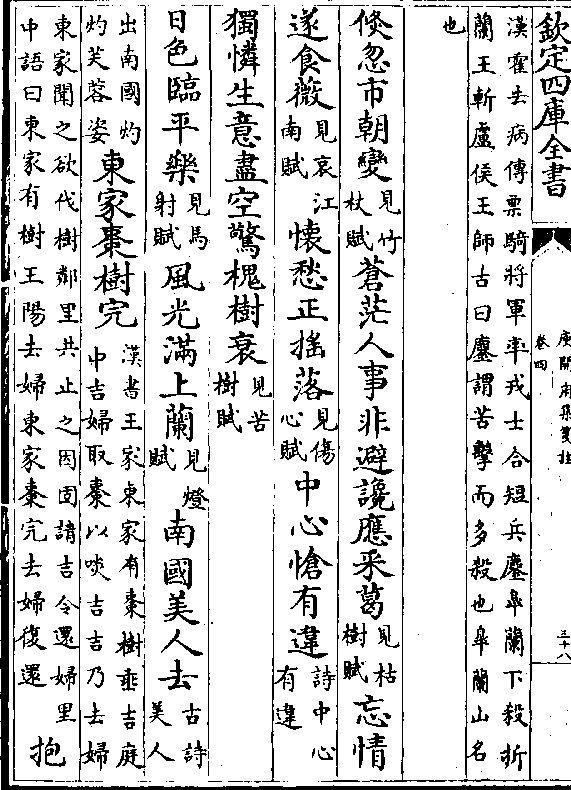 欽定四庫全書
庾開府集箋註
卷四
三十八
漢霍去病傳票騎將軍率戎士合短兵鏖皐蘭下殺折
蘭王斬盧侯王師古曰鏖謂苦擊而多殺也皐蘭山名
也
倏忽市朝變見竹杖賦蒼茫人事非避讒應采葛見枯樹賦忘情
遂食薇見哀江南賦懷愁正搖落見傷心賦中心愴有違詩中心有違
獨憐生意盡空驚槐樹衰見苦樹賦
日色臨平樂見馬射賦風光滿上蘭見燈賦南國美人去古詩美人
出南國灼灼芙蓉姿東家棗樹完漢書王家東家有棗樹垂吉庭中吉婦取棗以啖吉吉乃去婦
東家聞之欲代樹鄰里共止之因固請吉令還婦里
中語曰東家有樹王陽去婦東家棗完去婦復還抱